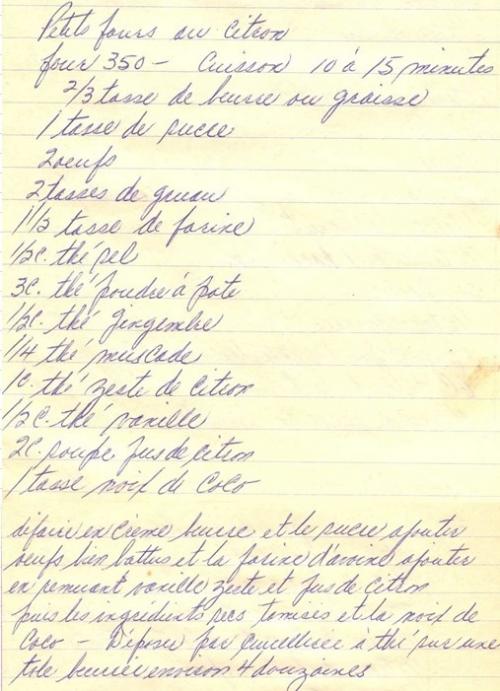 Petits fours au citron
four 350 - Cuisson 10 à 15 minutes
2/3 tasse de beurre ou graisse
1 tasse de sucre
2 oeufs
2 tasses de gruau
1 1/2 tasse de farine
1/2 c. thé sel
3 c. thé poudre à pate
1/2 c. thé gingembre
1/4 thé muscade
1 c. thé zeste de citron
1/2 c. thé vanille
2 c. soupe jus de citron
1 tasse noix de coco
défaire en crème beurre et le sucre ajouter
oeufs bien battus et la farine d'avoine ajouter
en remuant vanille zeste et jus de citron
puis les ingrédients secs tamisés et la noix de
coco - Déposer par cuillerée à thé sur une
tole beurrée environ 4 douzaines